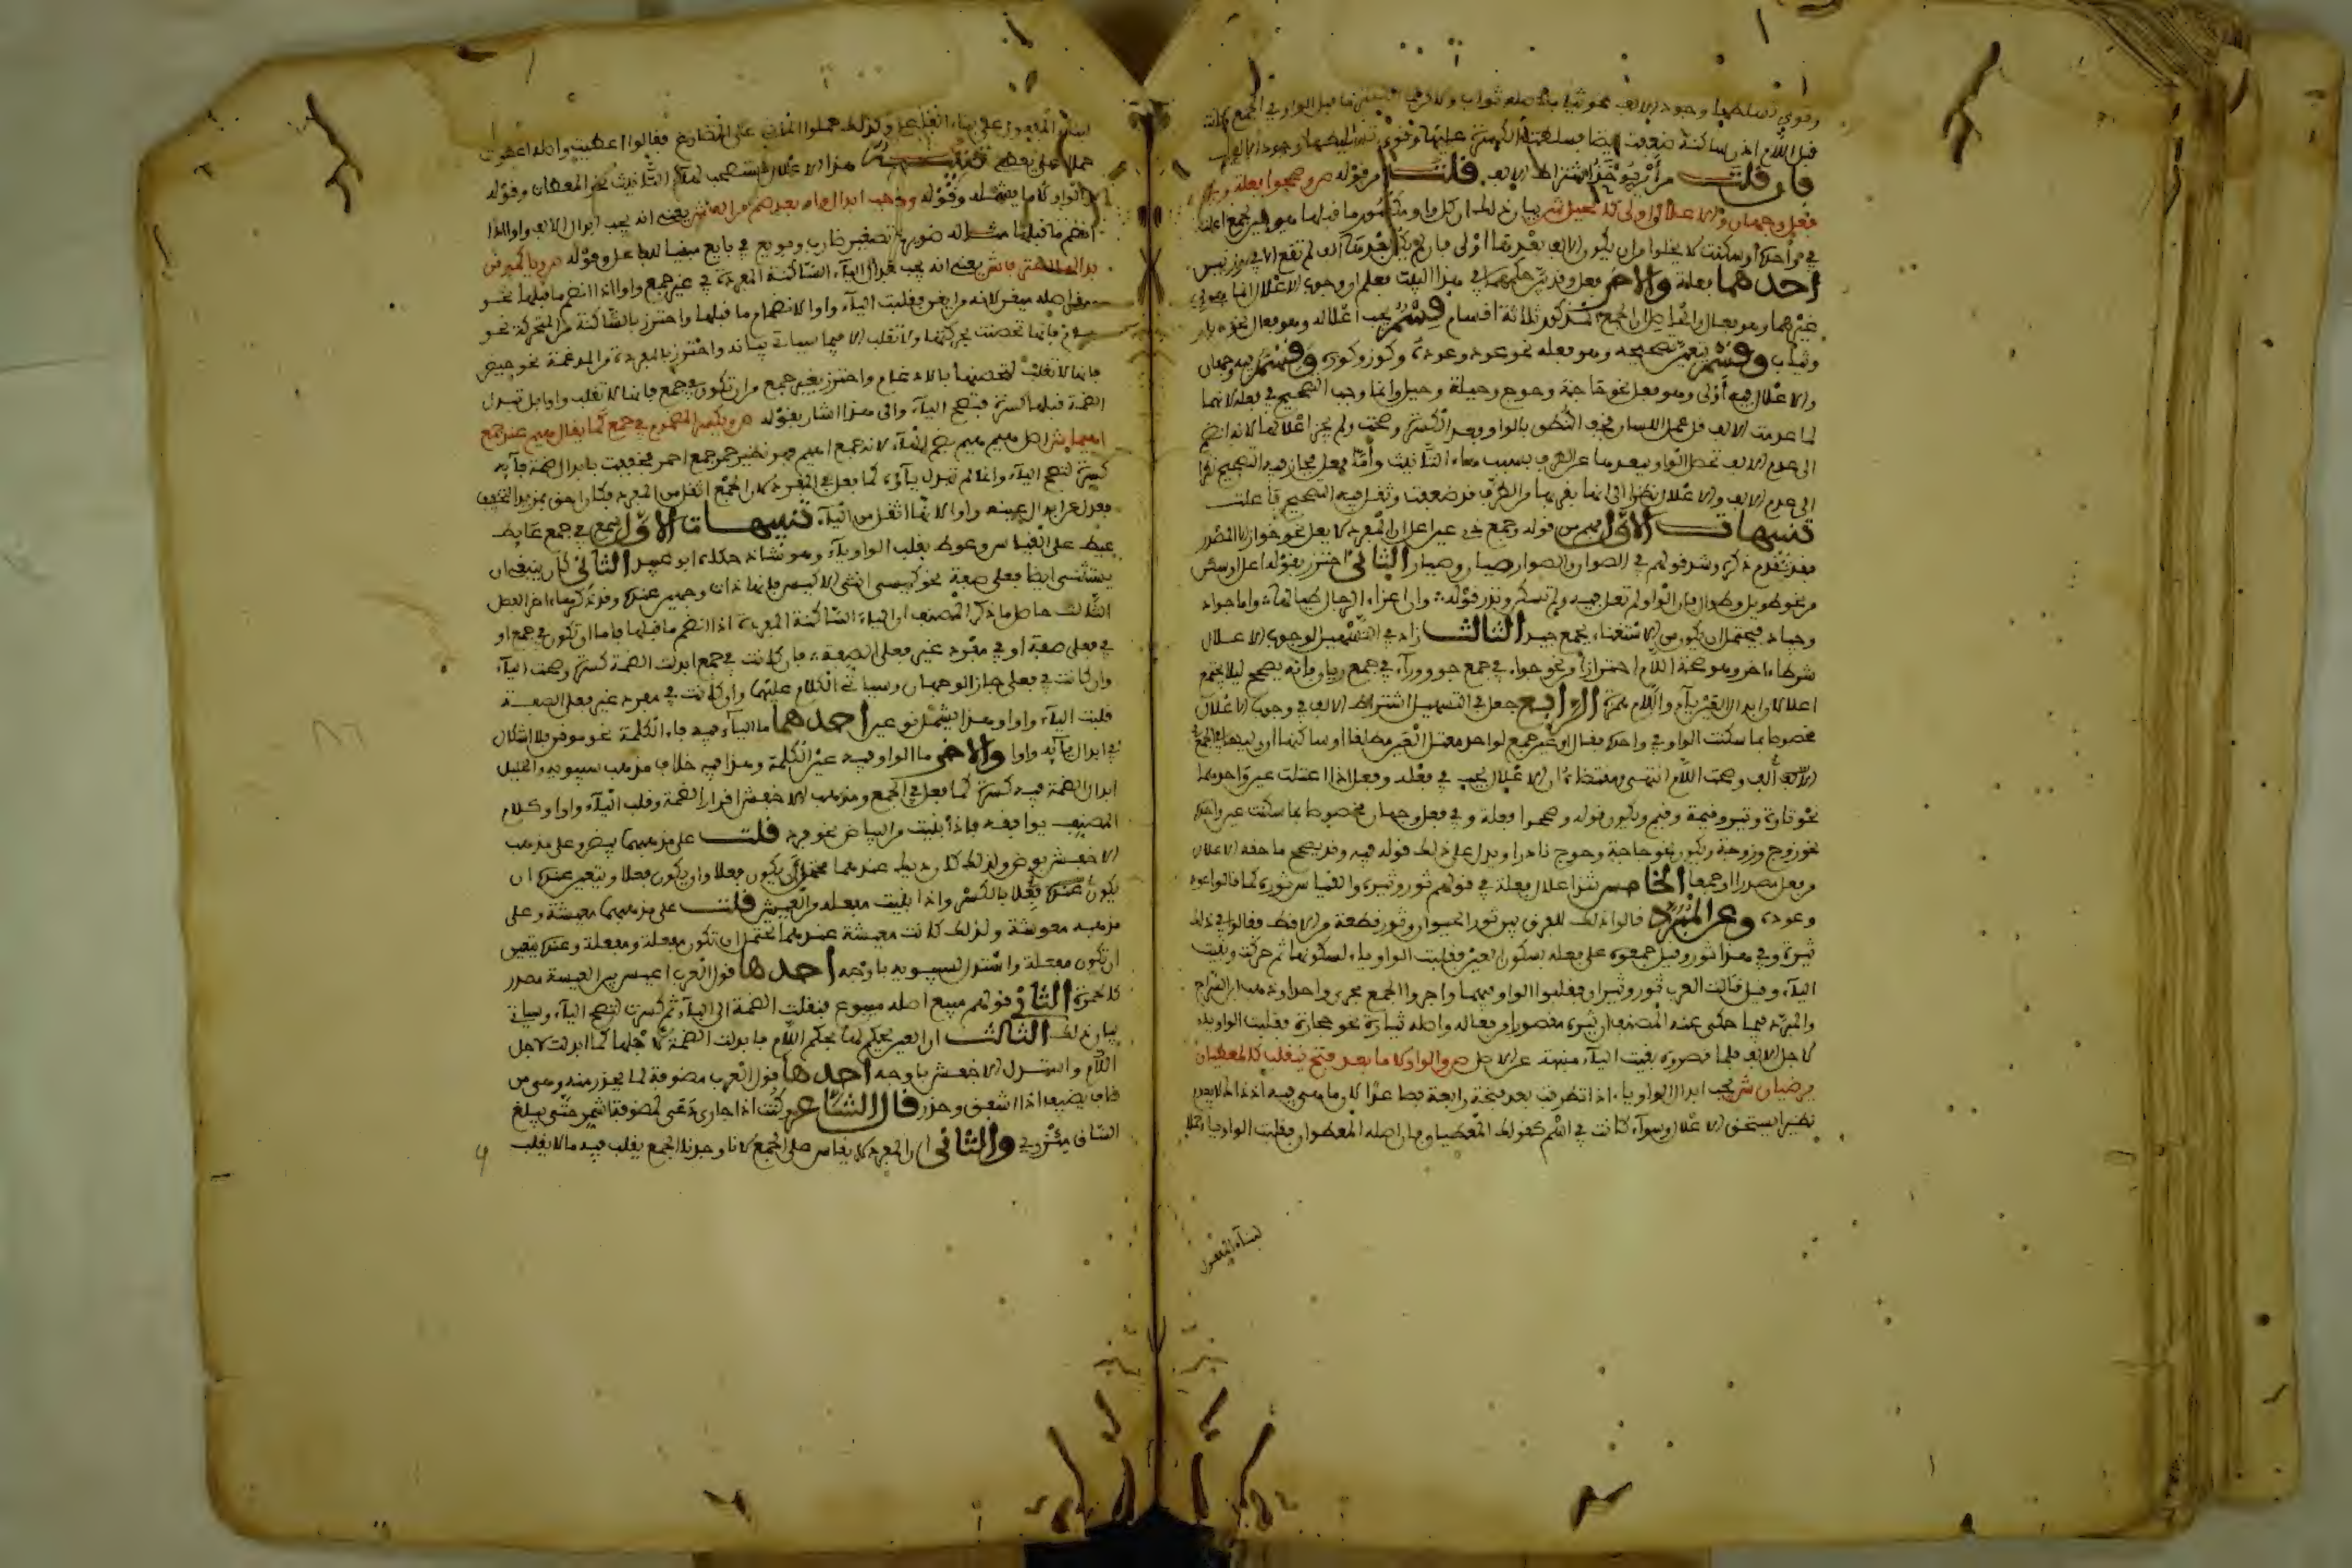 وقوي تسلطها وجود الالف نحو ثياب اصله ثواب ولا كرهما
قبل اللام اذن ساكنة ضعفت ايضا فسلطت الكسرة عليها وقوي تسليطها وجود الالف
فان قلت من اين يوخذ اشتراط الالف قلت من قوله ص وصححوا فعلة وفي
فعل وجهان والاعلال اولى كالحيل ش بيان ذلك ان كل واو مكسور ما قبلها هو عين جمع اعلت
في واحده او سكنت لا يخلوا من ان يكون الالف بعدها اولى فان لم يكن بعدها الف لم تقع الا في وزنين
احدهما فعلة والاخر فعل وقد بين حكمهما في هذا البيت فعلم ان وجوب الاعلال انما هو في
غيرهما وهو فعال والحاصل ان الجمع المذكور ثلاثة اقسام قسم يجب اعلاله وهو فعال نحو ديار
وثياب وقسم يتعين تصحيحه وهو فعلة نحو عود وعودة وكوز وكوزة وقسم فيه وجهان
والاعلال فيه اولى وهو فعل نحو حاجة وحوج وحيلة وحيل وانما وجب التصحيح في فعلة لانها
لما عدمت الالف قل عمل اللسان فخف النطق بالواو بعد الكسرة وصحت ولم يجز اعلالها لانه انضم
الى عدم الالف تحصن الواو ببعدها عن الطرف بسبب هاء التانيث واما فعل فجاز فيه التصحيح نظرا
الى عدم الالف والاعلال نظرا الى انها بقربها من الطرف قد ضعفت وثقل فيه التصحيح فاعلت
تنبيهات الاول فهم من قوله وجمع ذي عين اعل ان المفرد لا يعل نحو خوان الا المصدر
فقد تقدم ذكره وشذ قولهم في الصوان والصوار صيان وصيار الثاني احترز بقوله اعل او سكن
من نحو طويل وطوال فان الواو لم تعل فيه ولم تسكن وندر قوله : وان اعزاء الرجال طيالها : واما جواد
وجياد فيحتمل ان يكون من الاستغناء بجمع جيد الثالث زاد في التسهيل لوجوب الاعلال
شرطا اخر وهو صحة اللام احترازا من نحو جواء في جمع جو ورواء في جمع ريان فانه يصحح ليلا يجتمع
اعلالان ابدال العين ياء واللام همزة الرابع جعل في التسهيل اشتراط الالف في وجوب الاعلال
مخصوصا بما سكنت الواو في واحده فقال او عين جمع لواحد معتل العين مطلقا او ساكنها ان وليها في الجمع
الالف وصحت اللام انتهى ومقتضاه ان الاعلال يجب في فعلة وفعل اذا اعتلت عين واحدهما
نحو تارة وتير وقيمة وقيم ويكون قوله وصححوا فعلة وفي فعل وجهان مخصوصا بما سكنت عين واحده
نحو زوج وزوجة ويكون نحو حاجة وحوج نادرا ويدل على ذلك قوله فيه وقد يصحح ما حقه الاعلال
من فعل مصدرا او جمعا الخامس شذ اعلال فعلة في قولهم ثور وثيرة والقياس ثورة كما قالوا عود
وعودة وعن المبرد قالوا ذلك للفرق بين ثور الحيوان وثور قطعة من الاقط فقالوا في ذلك
ثيرة وفي هذا ثورة وقيل جمعوه على فعلة بسكون العين فقلبت الواو ياء لسكونها ثم حركت وبقيت
الياء وقيل قالت العرب ثور وثيران فقلبوا الواو فيهما واجروا الجمع مجرى واحدا وذهب ابن السراج
والمبرد فيما حكى عنه المصنف ان ثيرة مقصور من فعالة واصله ثيارة نحو حجارة فقلبت الواو ياء
لاجل الالف فلما قصروه بقيت الياء منبهة على الاصل ص والواو لاما بعد فتح يا انقلب كالمعطيان
يرضيان ش يجب ابدال الواو ياء اذا تطرفت بعد فتحة رابعة فصاعدا لان ما هي فيه اذ ذاك لا يعدم
نظيرا يستحق الاعلال وسواء كانت في اسم كقولك المعطيان فان اصله المعطوان فقلبت الواو ياء حملا
لبناء المفعول
لبناء المفعول على بناء الفاعل وكذلك حملوا الماضي على المضارع فقالوا اعطيت واصله اعطوت
حملا على يعطي تنبيه هذا الاعلال مستصحب مع هاء التانيث نحو المعطاة وقوله
والواو لاما يشمله وقوله ووجب ابدال واو بعد ضم من الف ش يعني انه يجب ابدال الالف واوا اذا
انضم ما قبلها مثاله ضويرب تصغير ضارب وبويع في بايع مبنيا للفاعل وقوله ص ويا كموقن
بذا لها اعترف ش يعني انه يجب ابدال الياء الساكنة المفردة في غير جمع واوا اذا انضم ما قبلها نحو
موقن اصله ميقن لانه من ايقن فقلبت الياء واوا لانضمام ما قبلها واحترز بالساكنة من المتحركة نحو
هيام فانها تحصنت بحركتها ولا تقلب الا فيما سياتي بيانه واحترز بالمفردة من المدغمة نحو حيض
فانها لا تقلب لتحصنها بالادغام واحترز بغير جمع من ان تكون في جمع فانها لا تقلب واوا بل تبدل
الضمة قبلها كسرة فتصح الياء والى هذا اشار بقوله ص ويكسر المضموم في جمع كما يقال هيم عند جمع
اهيما ش اصل هيم هيم بضم الهاء لانه جمع اهيم فهو نظير حمر جمع احمر فخففت بابدال ضمة فائه
كسرة لتصح الياء وانما لم تبدل ياؤه كما فعل في المفرد لان الجمع اثقل من المفرد فكان احق بمزيد التخفيف
فعدل عن ابدال عينه واوا لانها اثقل من الياء تنبيهات الاول سمع في جمع عايط
عيط على القياس وعوط بقلب الواو ياء وهو شاذ حكاه ابو عبيد الثاني كان ينبغي ان
يستثنى ايضا فعلى صفة نحو كيسى انثى الاكيس فانها ذات وجهين عنده وقد ذكرها اخر الفصل
الثالث حاصل ما ذكر المصنف ان الياء الساكنة المفردة اذا انضم ما قبلها فاما ان تكون في جمع او
في فعلى صفة او في مفرد غير فعلى الصفة : فان كانت في جمع ابدلت الضمة كسرة وصحت الياء
وان كانت في فعلى جاز الوجهان وسياتي الكلام عليها وان كانت في مفرد غير فعلى الصفة
قلبت الياء واوا وهذا يشمل نوعين احدهما ما الياء فيه فاء الكلمة نحو موقن فلا اشكال
في ابدال يائه واوا والاخر ما الواو فيه عين الكلمة وهذا فيه خلاف مذهب سيبويه والخليل
ابدال الضمة فيه كسرة كما فعل في الجمع ومذهب الاخفش اقرار الضمة وقلب الياء واوا وكلام
المصنف يوافقه فاذا بنيت من البياض نحو برد قلت على مذهبهما بيض وعلى مذهب
الاخفش بوض ولذلك كان ديك عندهما محتملا ان يكون فعلا وان يكون فعلا ويتعين عنده ان
يكون عنده فعلا بالكسر واذا بنيت مفعلة من العيش قلت على مذهبهما معيشة وعلى
مذهبه معوشة ولذلك كانت معيشة عندهما تحتمل ان تكون مفعلة ومفعلة وعنده يتعين
ان تكون مفعلة واستدل لسيبويه باوجه احدها قول العرب اعيس بين العيسة مصدر
كالحمرة الثاني قولهم مبيع اصله مبيوع فنقلت الضمة الى الياء ثم كسرت لتصح الياء وسياتي
بيان ذلك الثالث ان العين يحكم لها بحكم اللام فابدلت الضمة لاجلها كما ابدلت لاجل
اللام واستدل الاخفش باوجه احدها قول العرب مضوفة لما يحذر منه وهي من
ضاف يضيف اذا اشفق وحذر قال الشاعر وكنت اذا جاري دعى لمضوفة اشمر حتى يبلغ
الساق ميزري والثاني ان المفرد لا يقاس على الجمع لانا وجدنا الجمع يقلب فيه ما لا يقلب